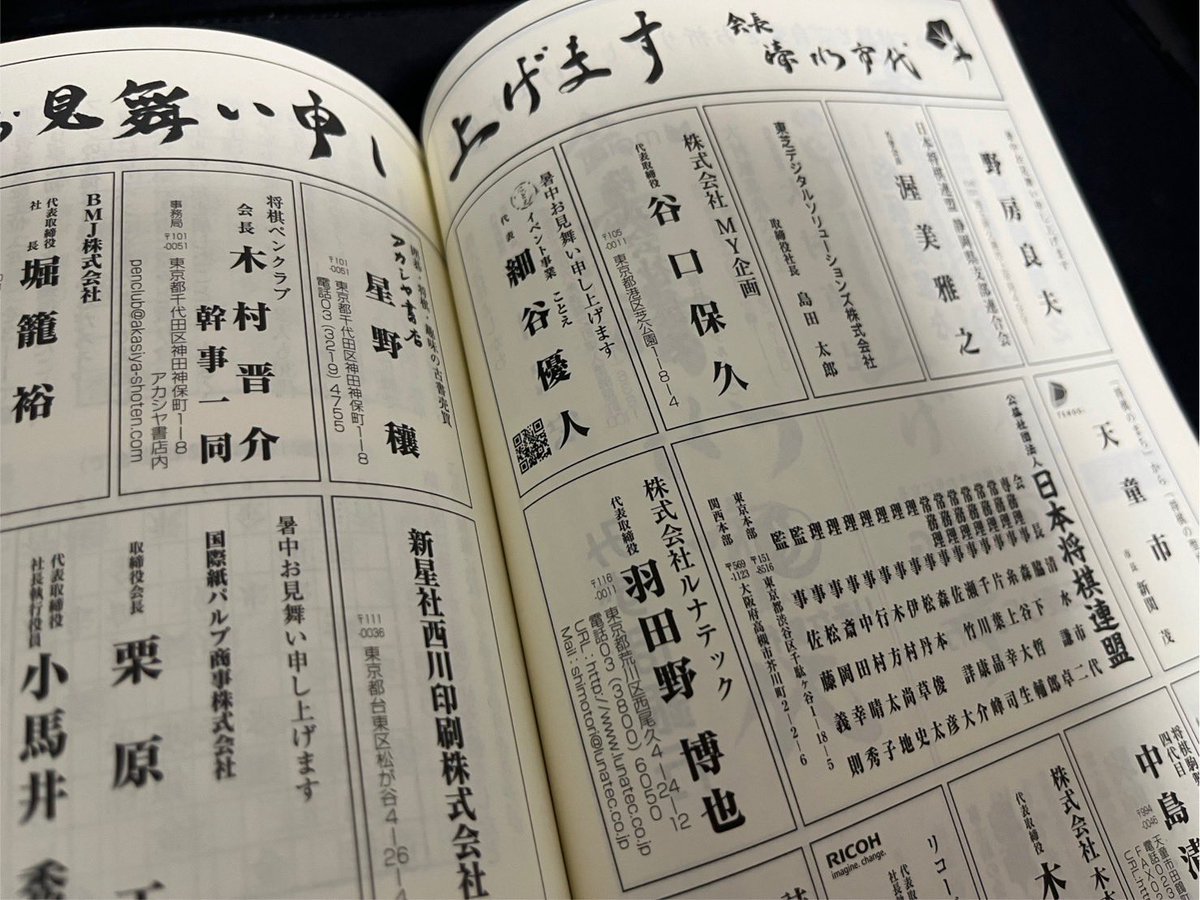 お見舞い申し
上げます
会長
清水市代
野房良夫
日本将棋連盟 静岡県支部連合会
渥美雅之
東芝デジタルソリューションズ株式会社
取締役社長 島田太郎
株式会社 MY企画
代表取締役 谷口保久
〒105-0011 東京都港区芝公園1-8-4
暑中お見舞い申し上げます
イベント事業 ことえ
代表 細谷優人
「将棋のまち」から
天童市
市長 新関 茂
公益社団法人 日本将棋連盟
会長 清水市代
専務理事 脇 謙二
常務理事 森下 卓
常務理事 糸谷哲郎
常務理事 片上大輔
常務理事 千葉幸生
常務理事 瀬川晶司
理事 佐竹康峰
理事 森 詳介
理事 松本 大
理事 伊丹俊彦
理事 木村草太
理事 行方尚史
理事 中村太地
理事 斎田晴子
監事 松岡幸秀
監事 佐藤義則
東京本部 〒151-8516 東京都渋谷区千駄ヶ谷1-18-5
関西本部 〒569-1123 大阪府高槻市芥川町2-2-6
株式会社ルナテック
代表取締役 羽田野博也
〒116-0011 東京都荒川区西尾久4-24-12
電話03(3800)6050
URL:http://www.lunatec.co.jp
Mail:shimotori@lunatec.co.jp
将棋駒
四代目
中島清
〒994-0046 天童市田鶴
電話023
FAX02
株式会社
代表取締役 木
リコー
代表取締役
社長
RICOH
imagine. change.
将棋・趣味の古書売買
アカシヤ書店
星野 穣
〒101-0051 東京都千代田区神田神保町1-8
電話03(3219)4755
将棋ペンクラブ
会長 木村晋介
幹事一同
事務局 〒101-0051 東京都千代田区神田神保町1-8
アカシヤ書店内
penclub@akasiya-shoten.com
BMJ株式会社
代表取締役
社長 堀籠 裕
新星社西川印刷株式会社
〒111-0036 東京都台東区松が谷4-26-4
暑中お見舞い申し上げます
国際紙パルプ商事株式会社
取締役会長 栗原
代表取締役
社長執行役員 小馬井 秀